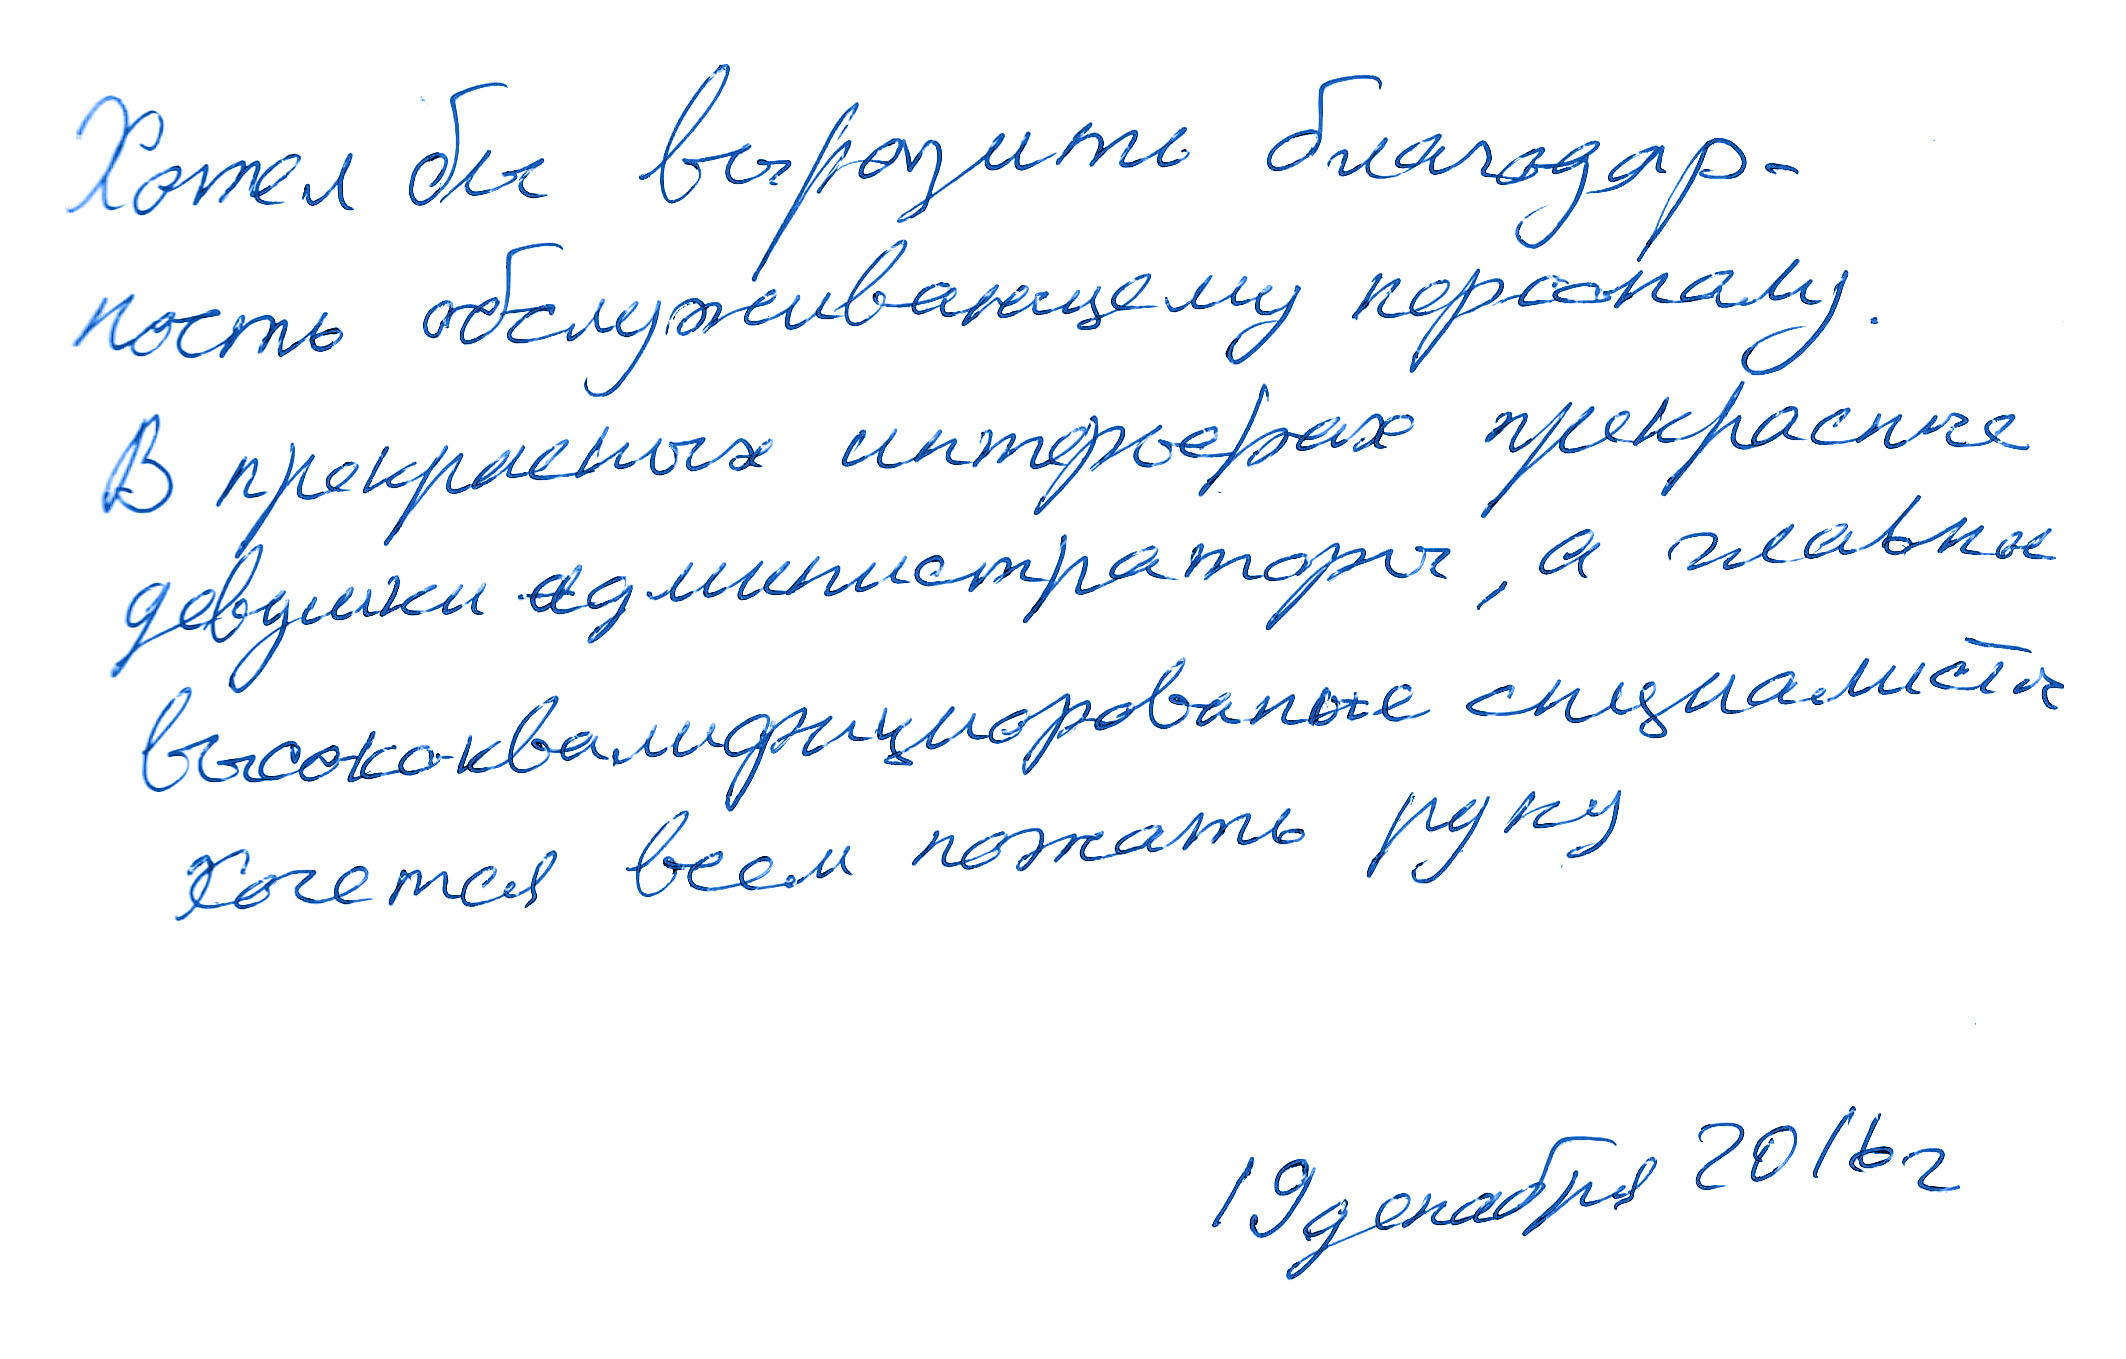 Хотел бы выразить благодар-
ность обслуживающему персоналу.
В прекрасных интерьерах прекрасные
девушки администраторы, а главное
высококвалифицированые специалисты
Хочется всем пожать руку
19 декабря 2016 г